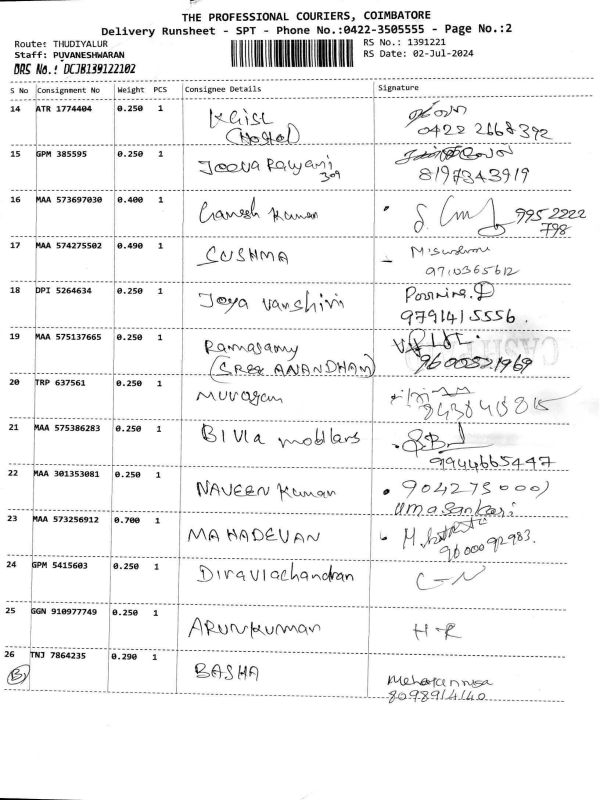 THE PROFESSIONAL COURIERS, COIMBATORE
Delivery Runsheet - SPT - Phone No.:0422-3505555 - Page No.:2
Route: THUDIYALUR
RS No.: 1391221
Staff: PUVANESHWARAN
RS Date: 02-Jul-2024
DRS No.: DCJB139122102
S No Consignment No Weight PCS Consignee Details Signature
14 ATR 1774404 0.250 1
(Hostel) 0422 2668392
15 GPM 385595 0.250 1
309 8197343919
16 MAA 573697030 0.400 1 Ganesh Kumar 995 2222
798
17 MAA 574275502 0.490 1 SUSHMA
9710365612
18 DPI 5264634 0.250 1 Joya vanshini Poornima.D
9791415556.
19 MAA 575137665 0.250 1 Ramasamy
(SREE ANANDHAM) 9600521969
20 TRP 637561 0.250 1 Murugan
21 MAA 575386283 0.250 1 Bivla motlars
9944665447
22 MAA 301353081 0.250 1 NAVEEN Kumar
Uma Sankari
23 MAA 573256912 0.700 1 MAHADEVAN
9600092983.
24 GPM 5415603 0.250 1 Diraviachandran C-N
25 GGN 910977749 0.250 1 ARUNKUMAR H-R
26 TNJ 7864235 0.290 1 BASHA
8098914140